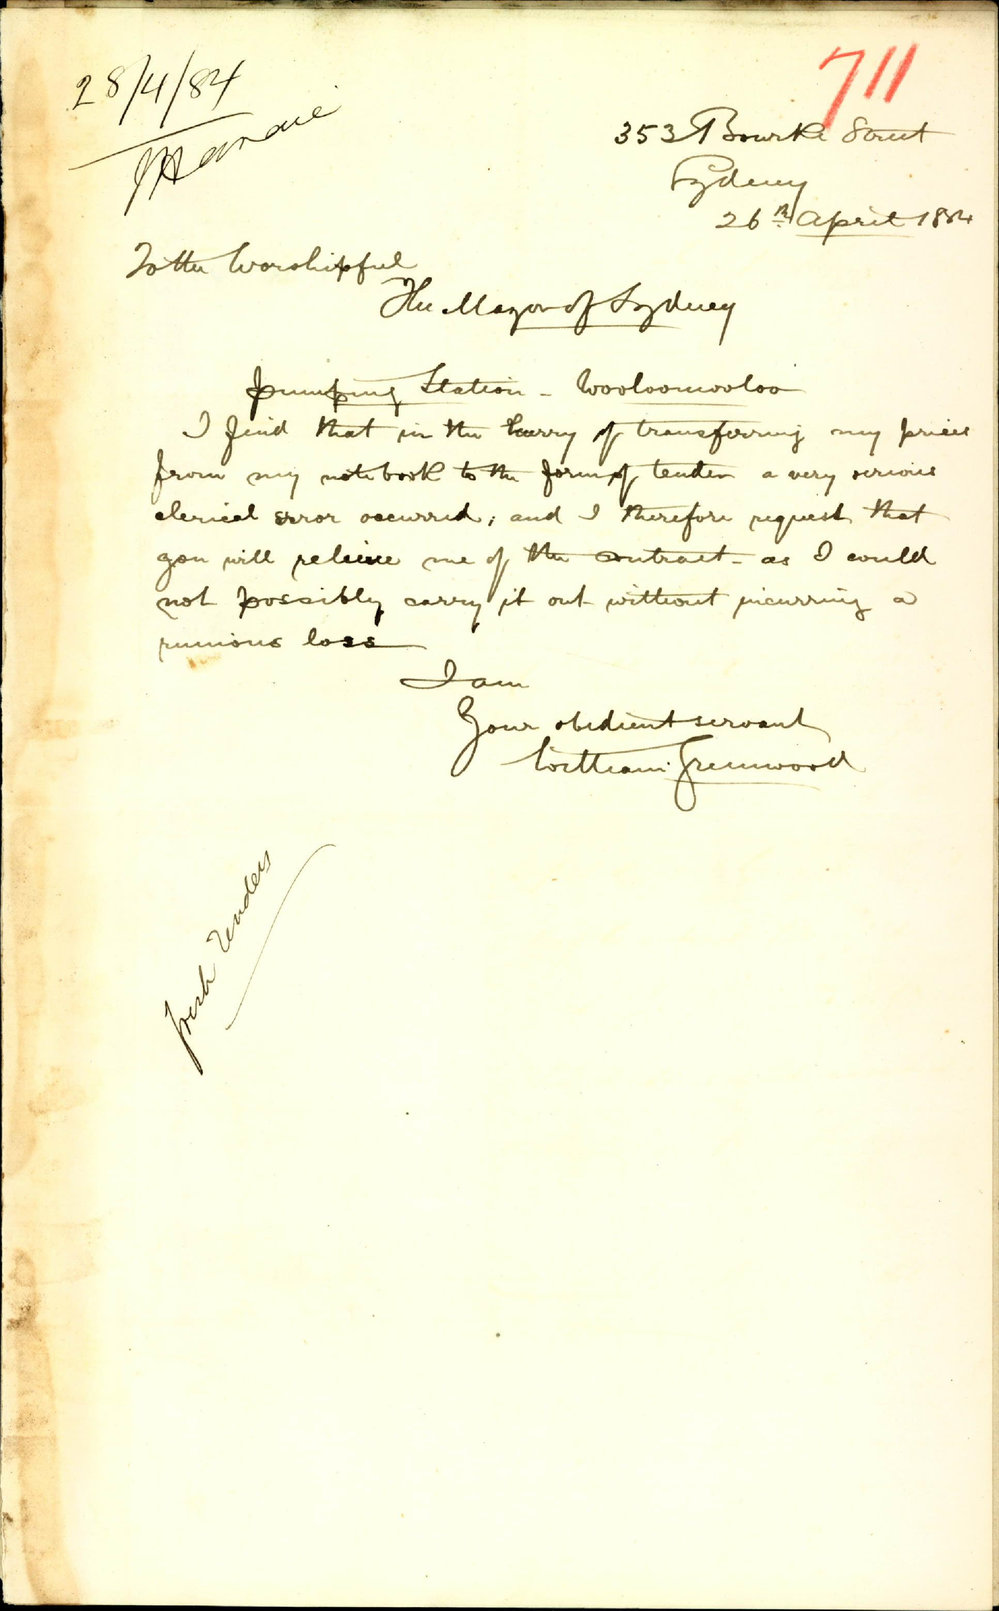 28/4/84
711
353 Bourke Street
Sydney
26th April 1884
To the Worshipful
The Mayor of Sydney
Pumping Station - Wooloomooloo
I find that in the hurry of transferring my prices
from my note book to the form of tender a very serious
clerical error occurred; and I therefore request that
you will relieve me of the contract - as I could
not possibly carry it out without incurring a
ruinous loss
I am
Your obedient servant
William Greenwood
Fresh Tenders